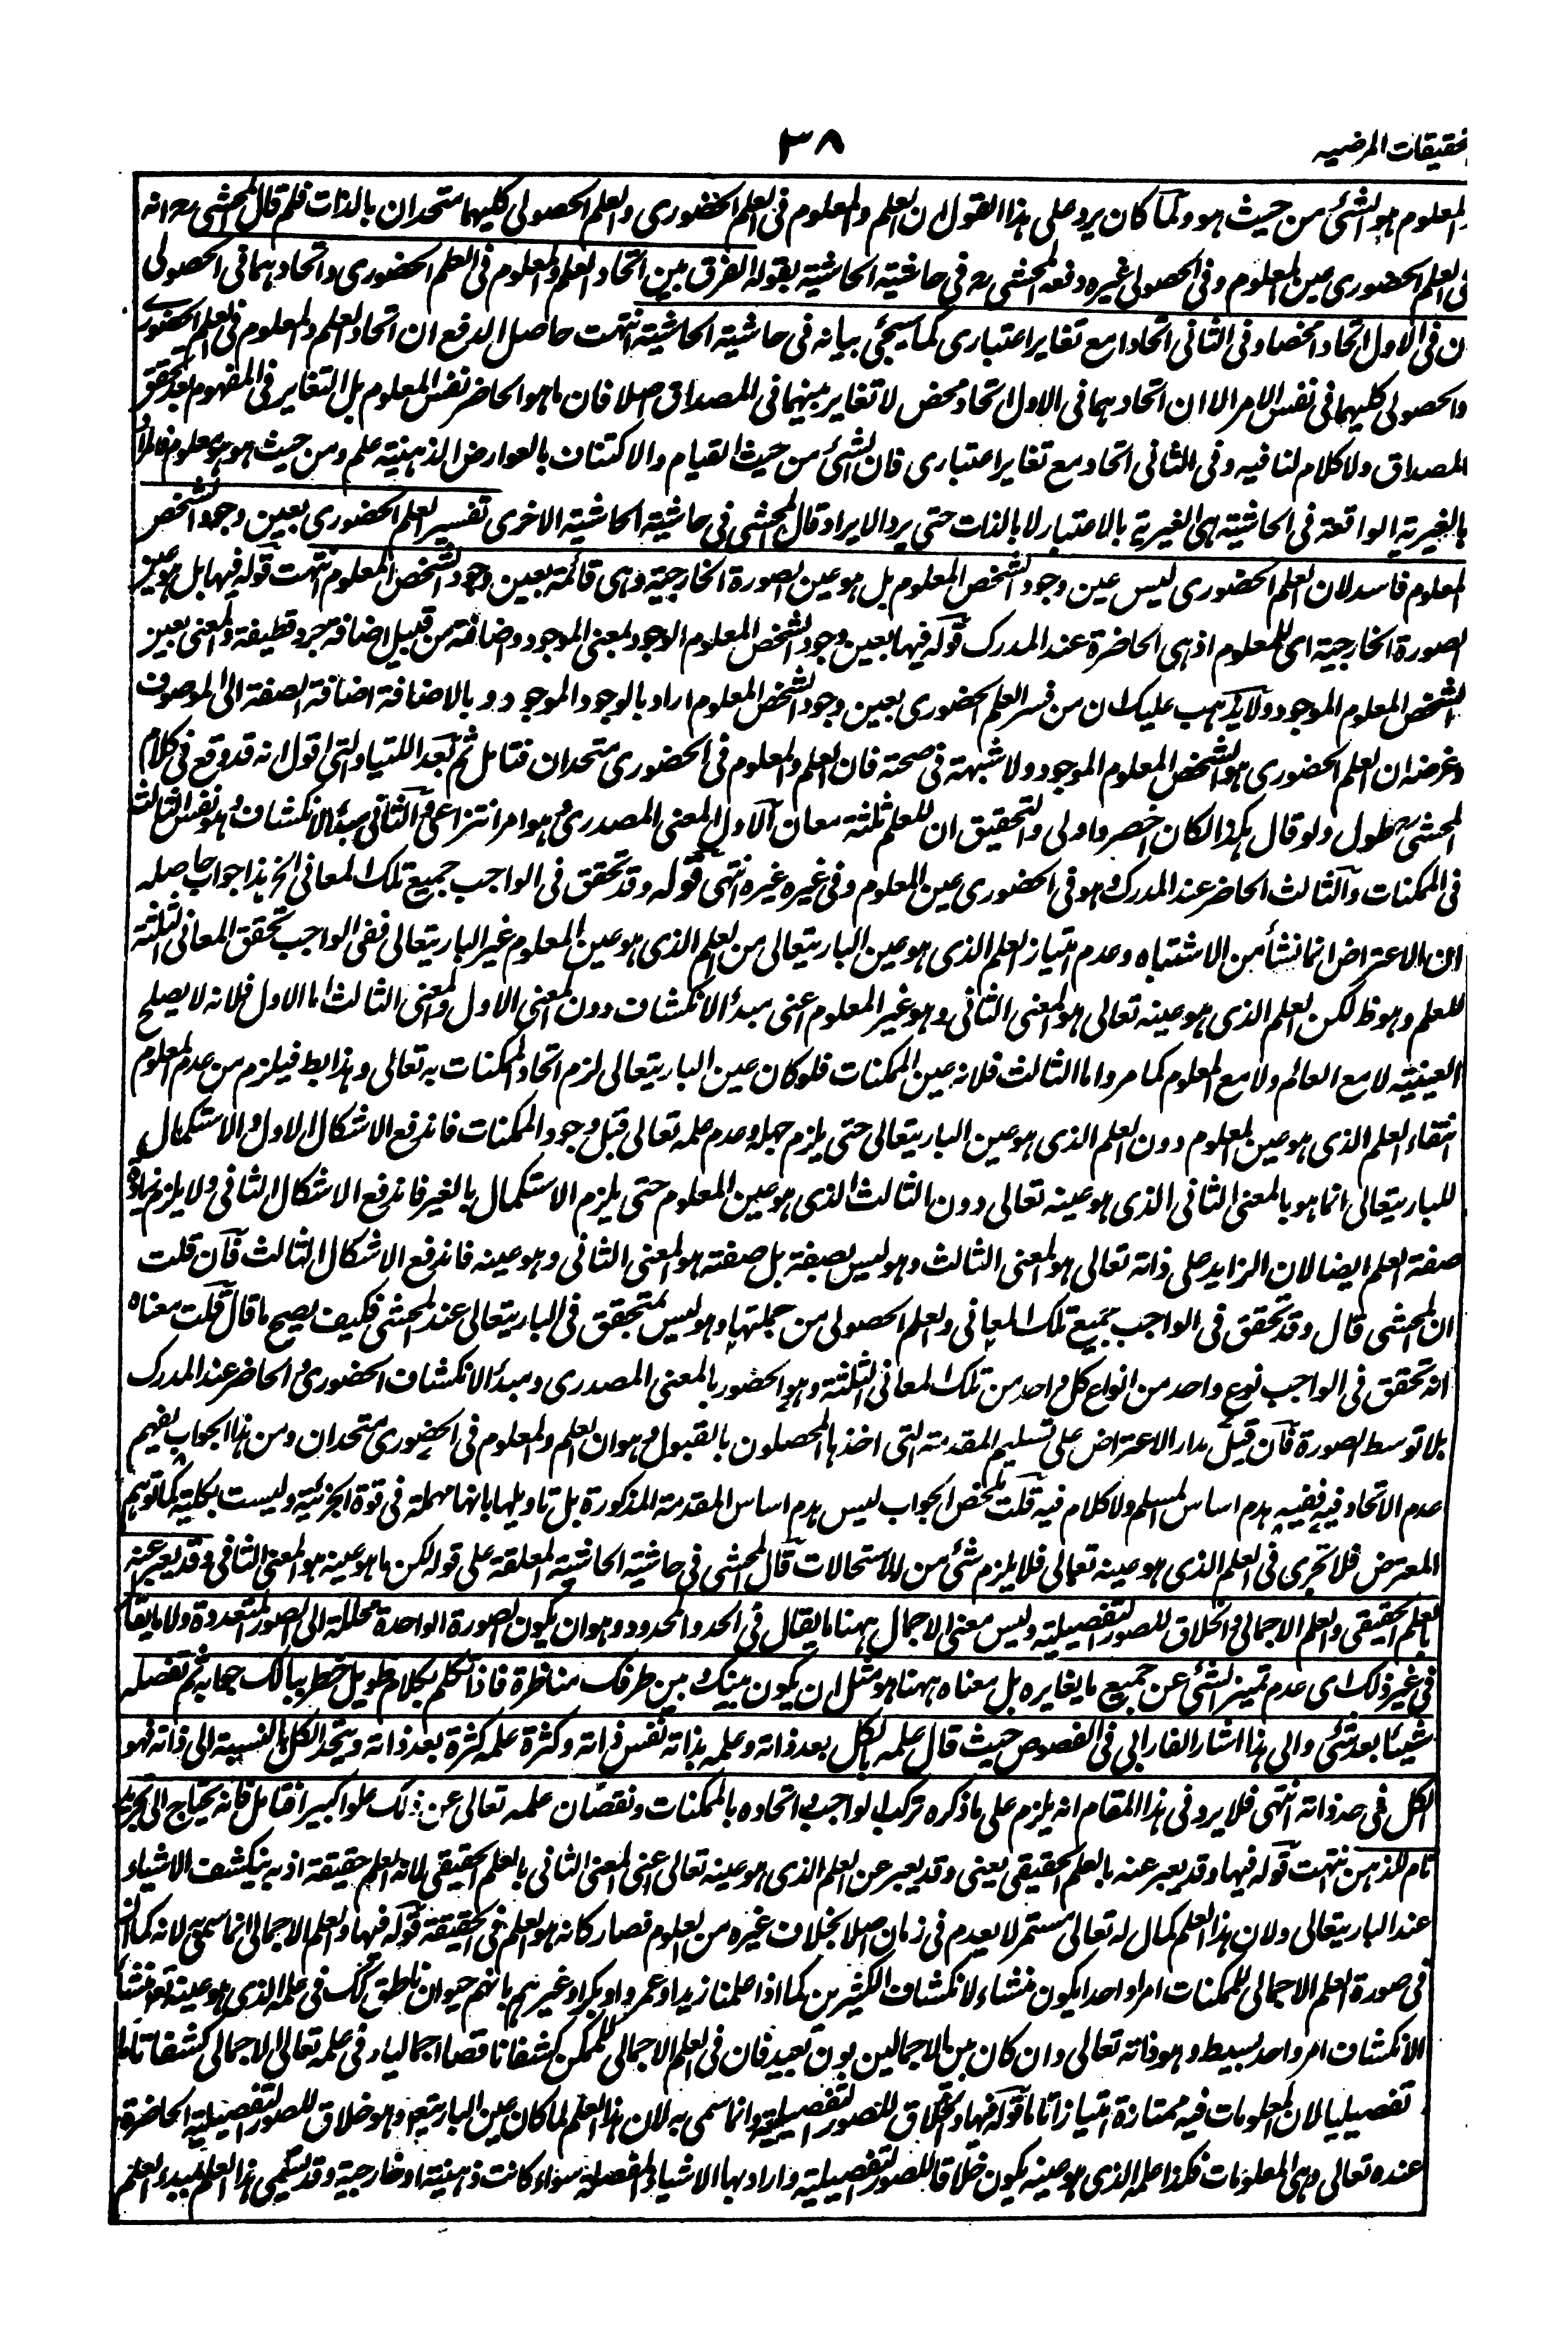 تحقيقات المرضيه
٣٨
المعلوم هو الشئ من حيث هو ولما كان يرد على هذا القول ان العلم والمعلوم فى العلم الحضورى والعلم الحصولى كليهما متحدان بالذات فلم قال المحشى رح انه
فى العلم الحضورى عين المعلوم وفى الحصولى غيره دفعه المحشى رح فى حاشية الحاشية بقوله الفرق بين اتحاد العلم والمعلوم فى العلم الحضورى واتحادهما فى الحصولى
ان فى الاول اتحادا محضا وفى الثانى اتحادا مع تغاير اعتبارى كما سيجئ بيانه فى حاشية الحاشية انتهت حاصل الدفع ان اتحاد العلم والمعلوم فى العلم الحضورى
والحصولى كليهما فى نفس الامر الا ان اتحادهما فى الاول اتحاد محض لا تغاير بينهما فى المصداق اصلا فان ما هو الحاضر نفس المعلوم بل التغاير فى المفهوم بعد تحقق
المصداق ولا كلام لنا فيه وفى الثانى اتحاد مع تغاير اعتبارى فان الشئ من حيث القيام والاكتناف بالعوارض الذهنية علم ومن حيث هو هو معلوم فالمراد
بالغيرية الواقعة فى الحاشية هى الغيرية بالاعتبار لا بالذات حتى يرد الايراد قال المحشى فى حاشية الحاشية الاخرى تفسير العلم الحضورى بعين وجود الشخص
المعلوم فاسد لان العلم الحضورى ليس عين وجود الشخص المعلوم بل هو عين الصورة الخارجية وهى قائمة بعين وجود الشخص المعلوم انتهت قوله فيها بل هو عين
الصورة الخارجية اى للمعلوم اذ هى الحاضرة عند المدرك قوله فيها بعين وجود الشخص المعلوم الوجود بمعنى الموجود واضافته من قبيل اضافة جرد قطيفة والمعنى بعين
الشخص المعلوم الموجود ولا يذهب عليك ان من فسر العلم الحضورى بعين وجود الشخص المعلوم اراد بالوجود الموجود و بالاضافة اضافة الصفة الى الموصوف
وغرضه ان العلم الحضورى هو الشخص المعلوم الموجود ولا شبهة فى صحته فان العلم والمعلوم فى الحضورى متحدان فتامل ثم بعد اللتيا والتى اقول انه قد وقع فى كلام
المحشى رح طول ولو قال هكذا لكان اخصر واولى والتحقيق ان للعلم ثلثة معان الاول المعنى المصدرى وهو امر انتزاعى والثانى مبدأ الانكشاف وهو نفس الثالث
فى الممكنات والثالث الحاضر عند المدرك وهو فى الحضورى عين المعلوم وفى غيره غيره انتهى قوله وقد تحقق فى الواجب جميع تلك المعانى الخ هذا جواب حاصله
ان الاعتراض انما نشأ من الاشتباه وعدم امتياز العلم الذى هو عين البارى تعالى من العلم الذى هو عين المعلوم غير البارى تعالى ففى الواجب تحقق المعانى الثلثة
للعلم وهو ظ لكن العلم الذى هو عينه تعالى هو المعنى الثانى وهو غير المعلوم اعنى مبدأ الانكشاف دون المعنى الاول والمعنى الثالث اما الاول فلانه لا يصلح
العينية لا مع العالم ولا مع المعلوم كما مر واما الثالث فلانه عين الممكنات فلو كان عين البارى تعالى لزم اتحاد الممكنات به تعالى وهذا بط فيلزم من عدم المعلوم
انتفاء العلم الذى هو عين المعلوم دون العلم الذى هو عين البارى تعالى حتى يلزم جهله وعدم علمه تعالى قبل وجود الممكنات فاندفع الاشكال الاول والاستكمال
للبارى تعالى انما هو بالمعنى الثانى الذى هو عينه تعالى دون الثالث الذى هو عين المعلوم حتى يلزم الاستكمال بالغير فاندفع الاشكال الثانى ولا يلزم زيادة
صفة العلم ايضا لان الزايد على ذاته تعالى هو المعنى الثالث وهو ليس بصفة بل صفته هو المعنى الثانى وهو عينه فاندفع الاشكال الثالث فان قلت
ان المحشى قال وقد تحقق فى الواجب جميع تلك المعانى والعلم الحصولى من جملتها وهو ليس بمتحقق فى البارى تعالى عند المحشى فكيف يصح ما قال قلت معناه
انه تحقق فى الواجب نوع واحد من انواع كل واحد من تلك المعانى الثلثة وهو الحضور بالمعنى المصدرى ومبدأ الانكشاف الحضورى والحاضر عند المدرك
بلا توسط الصورة فان قيل مدار الاعتراض على تسليم المقدمة التى اخذها المحصلون بالقبول وهو ان العلم والمعلوم فى الحضورى متحدان ومن هذا الجواب يفهم
عدم الاتحاد فيه ففيه هدم اساس المسلم ولا كلام فيه قلت ملخص الجواب ليس هدم اساس المقدمة المذكورة بل تاويلها بانها مهملة فى قوة الجزئية وليست بكلية كما توهم
المعترض فلا تجرى فى العلم الذى هو عينه تعالى فلا يلزم شئ من الاستحالات قال المحشى فى حاشية الحاشية المعلقة على قوله لكن ما هو عينه هو المعنى الثانى وقد يعبر عنه
بالعلم الحقيقى والعلم الاجمالى والخلاق للصور التفصيلية وليس معنى الاجمال ههنا ما يقال فى الحد والمحدود وهو ان يكون الصورة الواحدة محللة الى الصور المتعددة ولا ما يقال
فى غير ذلك اى عدم تميز الشئ عن جميع ما يغايره بل معناه ههنا هو مثل ان يكون بينك وبين طرفك مناظرة فاذا تكلم بكلام طويل خطر ببالك جوابه ثم تفصله
شيئا بعد شئ والى هذا اشار الفارابى فى الفصوص حيث قال علمه بالكل بعد ذاته وعلمه بذاته نفس ذاته وكثرة علمه كثرة بعد ذاته ويتحد الكل بالنسبة الى ذاته فهو
الكل فى حد ذاته انتهى فلا يرد فى هذا المقام انه يلزم على ما ذكره تركب الواجب او اتحاده بالممكنات ونقصان علمه تعالى عن ذلك علوا كبيرا فتامل فانه يحتاج الى تجريد
تام للذهن انتهت قوله فيها وقد يعبر عنه بالعلم الحقيقى يعنى وقد يعبر عن العلم الذى هو عينه تعالى اعنى المعنى الثانى بالعلم الحقيقى لانه العلم حقيقة اذ به ينكشف الاشياء
عند البارى تعالى ولان هذا العلم كمال له تعالى مستمر لا يعدم فى زمان اصلا بخلاف غيره من العلوم فصار كانه هو العلم فى الحقيقة قوله فيها والعلم الاجمالى انما سمى به لانه كما ان
فى صورة العلم الاجمالى للممكنات امرا واحدا يكون منشاء لانكشاف الكثيرين كما اذا علمنا زيدا وعمروا وبكرا وغيرهم بانهم حيوان ناطق كك فى علمه الذى هو عينه تعالى منشأ
الانكشاف امر واحد بسيط وهو ذاته تعالى وان كان بين الاجمالين بون بعيد فان فى العلم الاجمالى للممكن كشفا ناقصا اجماليا وفى علمه تعالى الاجمالى كشفا تاما
تفصيليا لان المعلومات فيه ممتازة امتيازا تاما قوله فيها والخلاق للصور التفصيلية وانما سمى به لان هذا العلم لما كان عين البارى تعالى وهو خلاق للصور التفصيلية الحاضرة
عنده تعالى وهى المعلومات فكذا علمه الذى هو عينه يكون خلاقا للصور التفصيلية واراد بها الاشياء المفصلة سواء كانت ذهنية او خارجية وقد يسمى هذا العلم بمبدء العلم